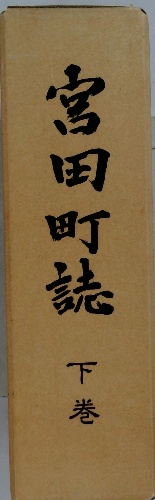 宮田町誌
下巻